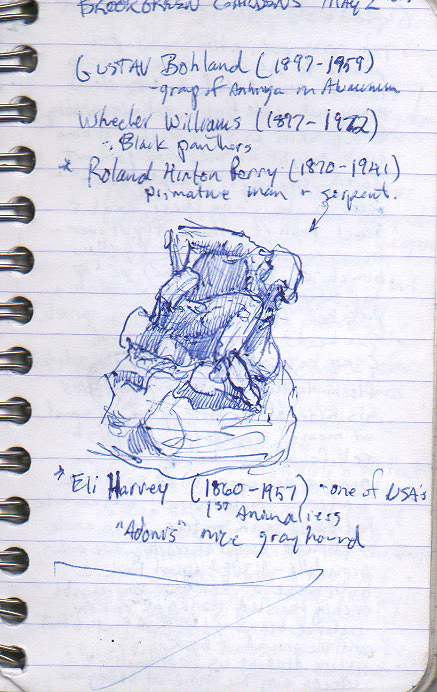 BROOKGREEN GARDENS MAY 2
GUSTAV Bohland (1897-1959)
- group of Anhinga in Aluminum
Wheeler Williams (1897-1972)
- Black panthers
* Roland Hinton Perry (1870-1941)
primative man + serpent.
* Eli Harvey (1860-1957) - one of USA's
1st Animaliess
"Adonis" nice grayhound